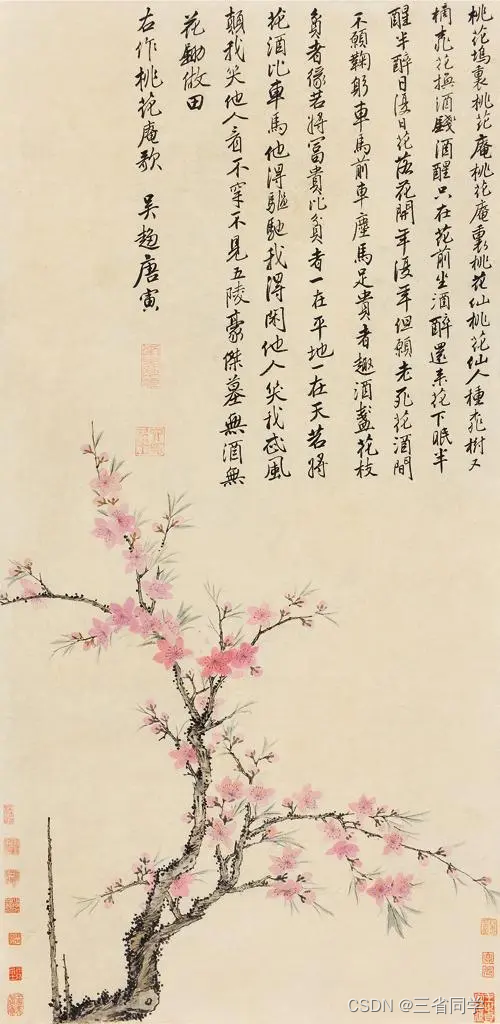 桃花塢裏桃花庵桃花庵裏桃花仙桃花仙人種桃樹又
摘桃花換酒錢酒醒只在花前坐酒醉還來花下眠半
醒半醉日復日花落花開年復年但願老死花酒間
不願鞠躬車馬前車塵馬足貴者趣酒盞花枝
貧者緣若將富貴比貧者一在平地一在天若將
花酒比車馬他得驅馳我得閑他人笑我忒風
顛我笑他人看不穿不見五陵豪傑墓無酒無
花鋤做田
右作桃花庵歌 吳趨唐寅
CSDN @三省同学